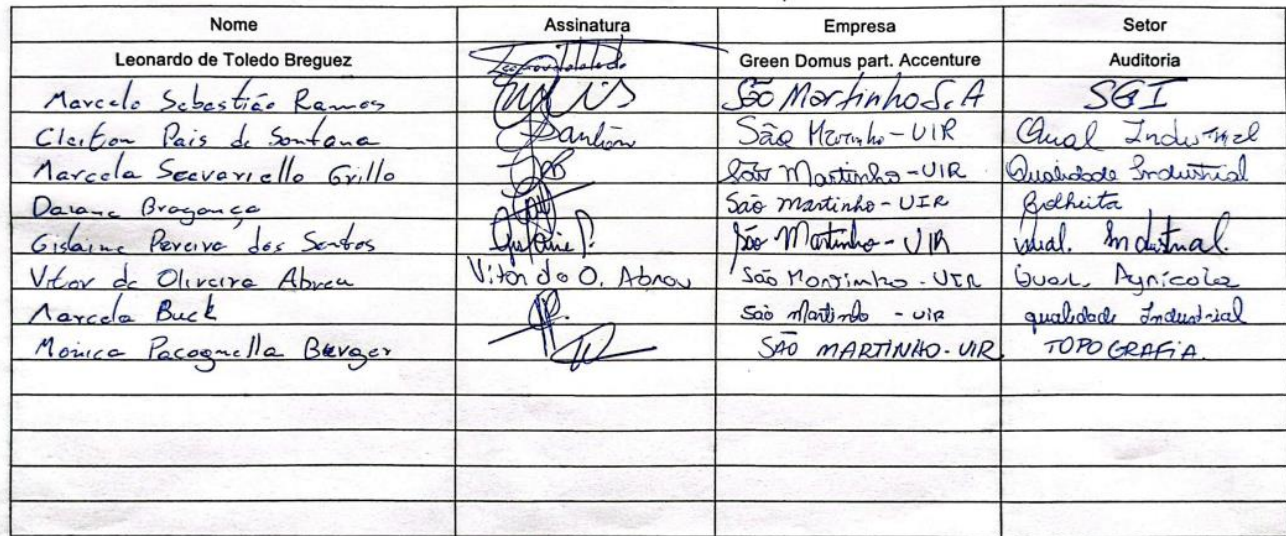 Nome Assinatura Empresa Setor
Leonardo de Toledo Breguez Green Domus part. Accenture Auditoria
Marcelo Sebastião Ramos São Martinho S.A SGI
Cleiton Pais de Santana São Martinho - UIR Qual Industrial
Marcela Grillo São Martinho - UIR Qualidade Industrial
Daiane Bragança São Martinho - UIR Colheita
Gislaine Pereira dos Santos Gislaine P. São Martinho - UIR Qual. Industrial.
Vitor de Oliveira Abreu Vitor de O. Abreu São Martinho - UIR Qual. Agrícola
Marcela Buck São Martinho - UIR qualidade Industrial
Monica Pacagnella Berger SÃO MARTINHO - UIR TOPOGRAFIA.